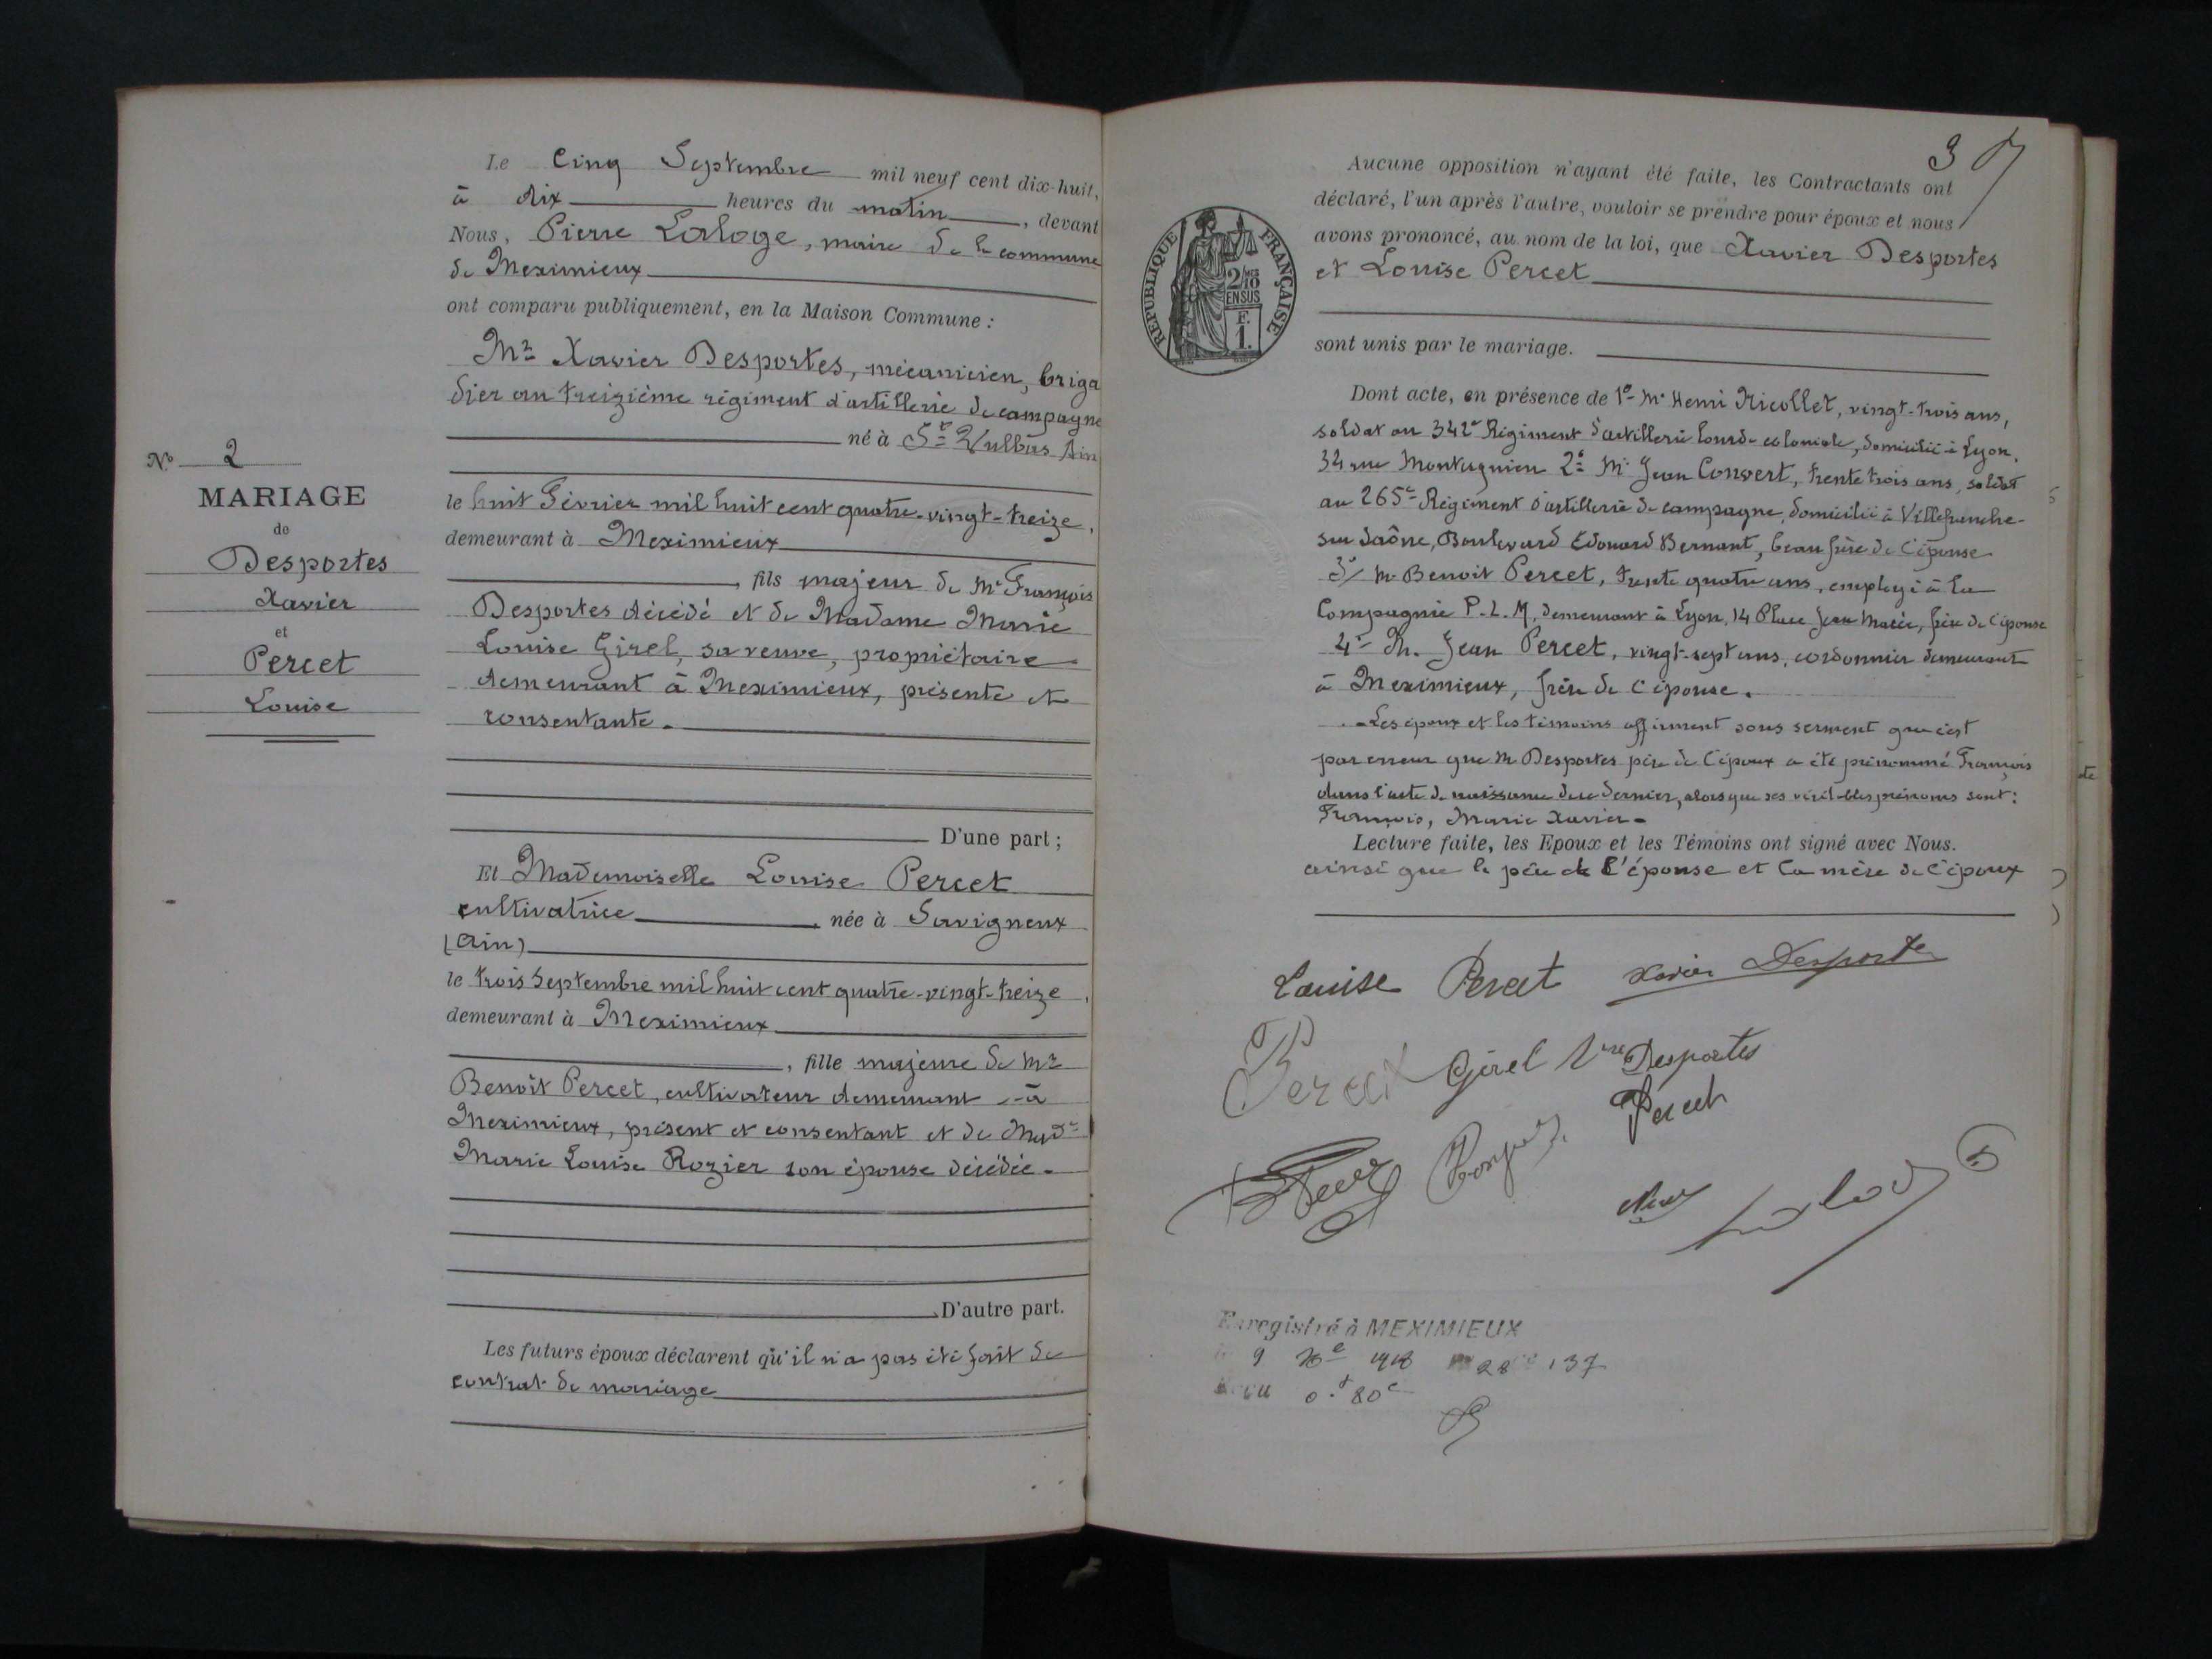 Le Cinq Septembre mil neuf cent dix-huit,
à dix heures du matin, devant
Nous, Pierre Laloge, maire de la commune
de Meximieux
ont comparu publiquement, en la Maison Commune :
Mr Xavier Desportes, mécanicien, briga
dier au treizième régiment d'artillerie de campagne
né à St Vulbas Ain
le huit Février mil huit cent quatre-vingt-treize,
demeurant à Meximieux
, fils majeur de Mr François
Desportes décédé et de Madame Marie
Louise Girel, sa veuve, propriétaire
demeurant à Meximieux, présente et
consentante.
D'une part ;
Et Mademoiselle Louise Percet
cultivatrice, née à Savigneux
(Ain)
le trois Septembre mil huit cent quatre-vingt-treize,
demeurant à Meximieux
, fille majeure de Mr
Benoît Percet, cultivateur demeurant à
Meximieux, présent et consentant et de Made
Marie Louise Rozier son épouse décédée.
D'autre part.
Les futurs époux déclarent qu'il n'a pas été fait de
contrat de mariage
No 2
MARIAGE
de
Desportes
Xavier
et
Percet
Louise
3
Aucune opposition n'ayant été faite, les Contractants ont
déclaré, l'un après l'autre, vouloir se prendre pour époux et nous
avons prononcé, au nom de la loi, que Xavier Desportes
et Louise Percet
sont unis par le mariage.
REPUBLIQUE FRANÇAISE
2/10
EN SUS
F.
1.
Dont acte, en présence de 1° Mr Henri Nicollet, vingt-trois ans,
soldat au 342e Régiment d'artillerie lourde coloniale, domicilié à Lyon,
34 rue Montesquieu 2° Mr Jean Convert, trente trois ans, soldat
au 265e Régiment d'artillerie de campagne, domicilié à Villefranche-
sur Saône, Boulevard Edouard Bernant, beau frère de l'épouse
3° Mr Benoit Percet, trente quatre ans, employé à la
Compagnie P.L.M, demeurant à Lyon, 14 Place Jean Macé, frère de l'épouse
4° M. Jean Percet, vingt-sept ans, cordonnier demeurant
à Meximieux, frère de l'épouse.
Les époux et les témoins affirment sous serment que c'est
par erreur que Mr Desportes père de l'époux a été prénommé François
dans l'acte de naissance de ce dernier, alors que ses véritables prénoms sont :
François, Marie Xavier.
Lecture faite, les Epoux et les Témoins ont signé avec Nous.
ainsi que le père de l'épouse et la mère de l'époux
Louise Percet Xavier Desportes
Percet Girel Vve Desportes
Percet
Enregistré à MEXIMIEUX
9 1918 28 137
Reçu 0.f 80c